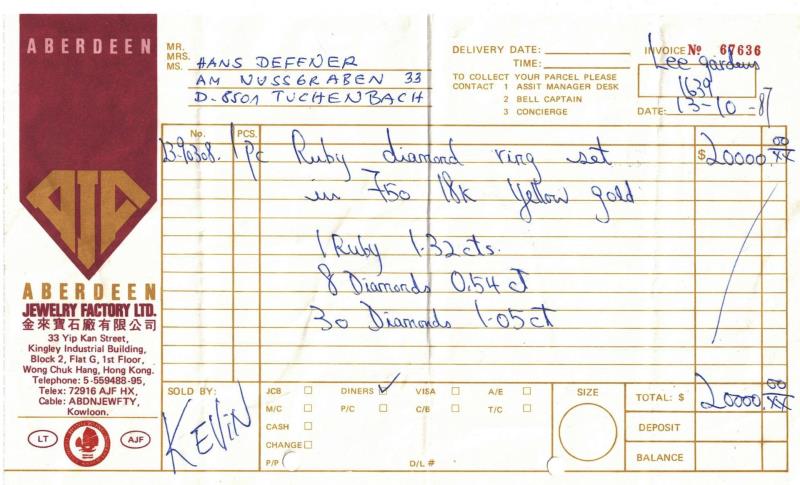 ABERDEEN
AJA
ABERDEEN
JEWELRY FACTORY LTD.
金來寶石廠有限公司
33 Yip Kan Street,
Kingley Industrial Building,
Block 2, Flat G, 1st Floor,
Wong Chuk Hang, Hong Kong.
Telephone: 5-559488-95,
Telex: 72916 AJF HX,
Cable: ABDNJEWFTY,
Kowloon.
LT AJF
MR.
MRS.
MS.
HANS DEFFNER
AM NUSSGRABEN 33
D-8501 TUCHENBACH
DELIVERY DATE:
TIME:
TO COLLECT YOUR PARCEL PLEASE
CONTACT 1 ASSIT MANAGER DESK
2 BELL CAPTAIN
3 CONCIERGE
INVOICE No 67636
Lee gardens
1639
DATE: 13-10-87
No. PCS.
1 Pc Ruby diamond ring set $20000.00/XX
in 750 18k Yellow gold
1 Ruby 1.32 cts.
8 Diamonds 0.54 ct
30 Diamonds 1.05 ct
SOLD BY:
KEVIN
JCB DINERS ✓ VISA A/E
M/C P/C C/B T/C
CASH
CHANGE
P/P D/L #
SIZE
TOTAL: $ 20000.00/XX
DEPOSIT
BALANCE